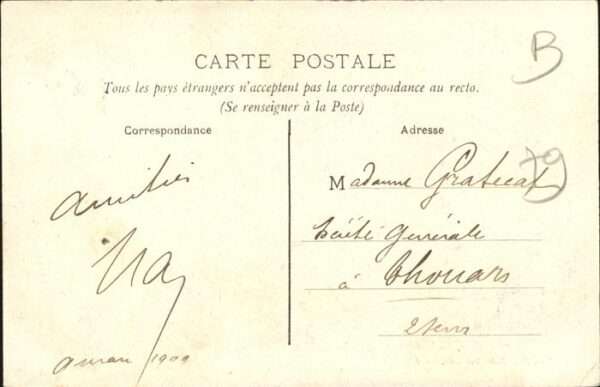 B
CARTE POSTALE
Tous les pays étrangers n'acceptent pas la correspondance au recto.
(Se renseigner à la Poste)
Correspondance
Amitiés
Adresse
79
Madame
Société Générale
à Thouars
2 Sèvres